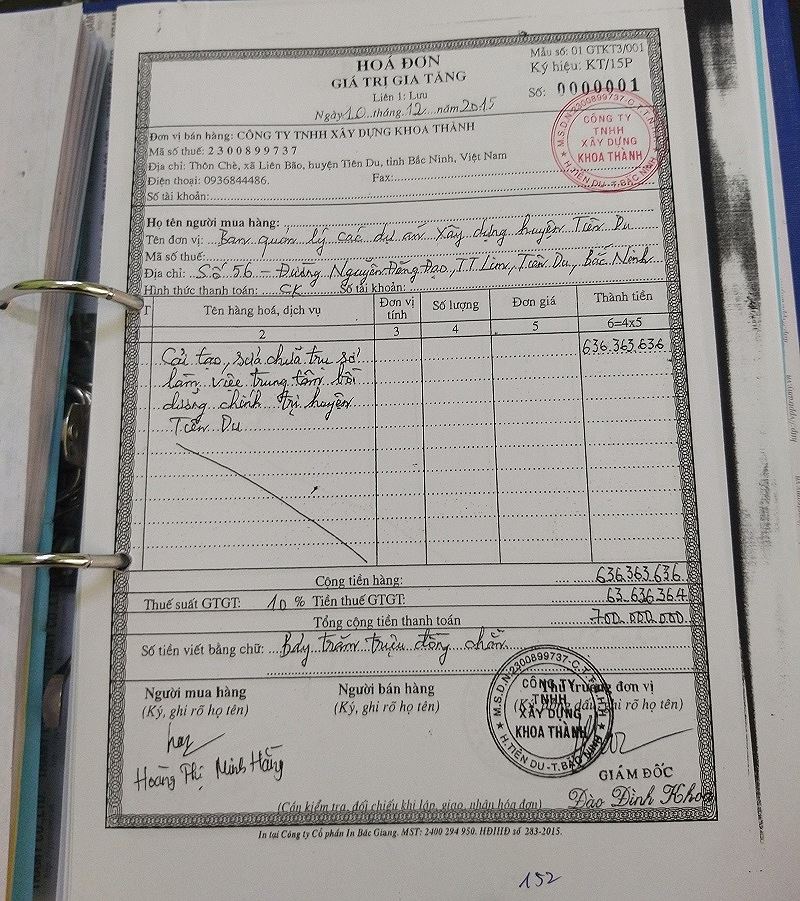 HOÁ ĐƠN
GIÁ TRỊ GIA TĂNG
Liên 1: Lưu
Ngày 10 tháng 12 năm 2015
Mẫu số: 01 GTKT3/001
Ký hiệu: KT/15P
Số: 0000001
Đơn vị bán hàng: CÔNG TY TNHH XÂY DỰNG KHOA THÀNH
Mã số thuế: 2300899737
Địa chỉ: Thôn Chè, xã Liên Bão, huyện Tiên Du, tỉnh Bắc Ninh, Việt Nam
Điện thoại: 0936844486. Fax:
Số tài khoản:
M.S.D.N:2300899737-C.T.T.N.H.H
CÔNG TY
TNHH
XÂY DỰNG
KHOA THÀNH
H.TIÊN DU-T.BẮC NINH
Họ tên người mua hàng:
Tên đơn vị: Ban quản lý các dự án xây dựng huyện Tiên Du
Mã số thuế:
Địa chỉ: Số 56 - Đường Nguyễn Đăng Đạo, TT Lim, Tiên Du, Bắc Ninh
Hình thức thanh toán: CK Số tài khoản:
T Tên hàng hoá, dịch vụ Đơn vị tính Số lượng Đơn giá Thành tiền
2 3 4 5 6=4x5
Cải tạo, sửa chữa trụ sở 636.363.636
làm việc trung tâm bồi
dưỡng chính trị huyện
Tiên Du
Cộng tiền hàng: 636.363.636
Thuế suất GTGT: 10 % Tiền thuế GTGT: 63.636.364
Tổng cộng tiền thanh toán 700.000.000
Số tiền viết bằng chữ: Bảy trăm triệu đồng chẵn
Người mua hàng
(Ký, ghi rõ họ tên)
Hoàng Thị Minh Hằng
Người bán hàng
(Ký, ghi rõ họ tên)
Thủ trưởng đơn vị
(Ký, đóng dấu, ghi rõ họ tên)
M.S.D.N:2300899737-C.T.T.N.H.H
CÔNG TY
TNHH
XÂY DỰNG
KHOA THÀNH
H.TIÊN DU-T.BẮC NINH
GIÁM ĐỐC
Đào Đình Khoa
(Cần kiểm tra, đối chiếu khi lập, giao, nhận hóa đơn)
In tại Công ty Cổ phần In Bắc Giang. MST: 2400 294 950. HĐIHĐ số 283-2015.
152